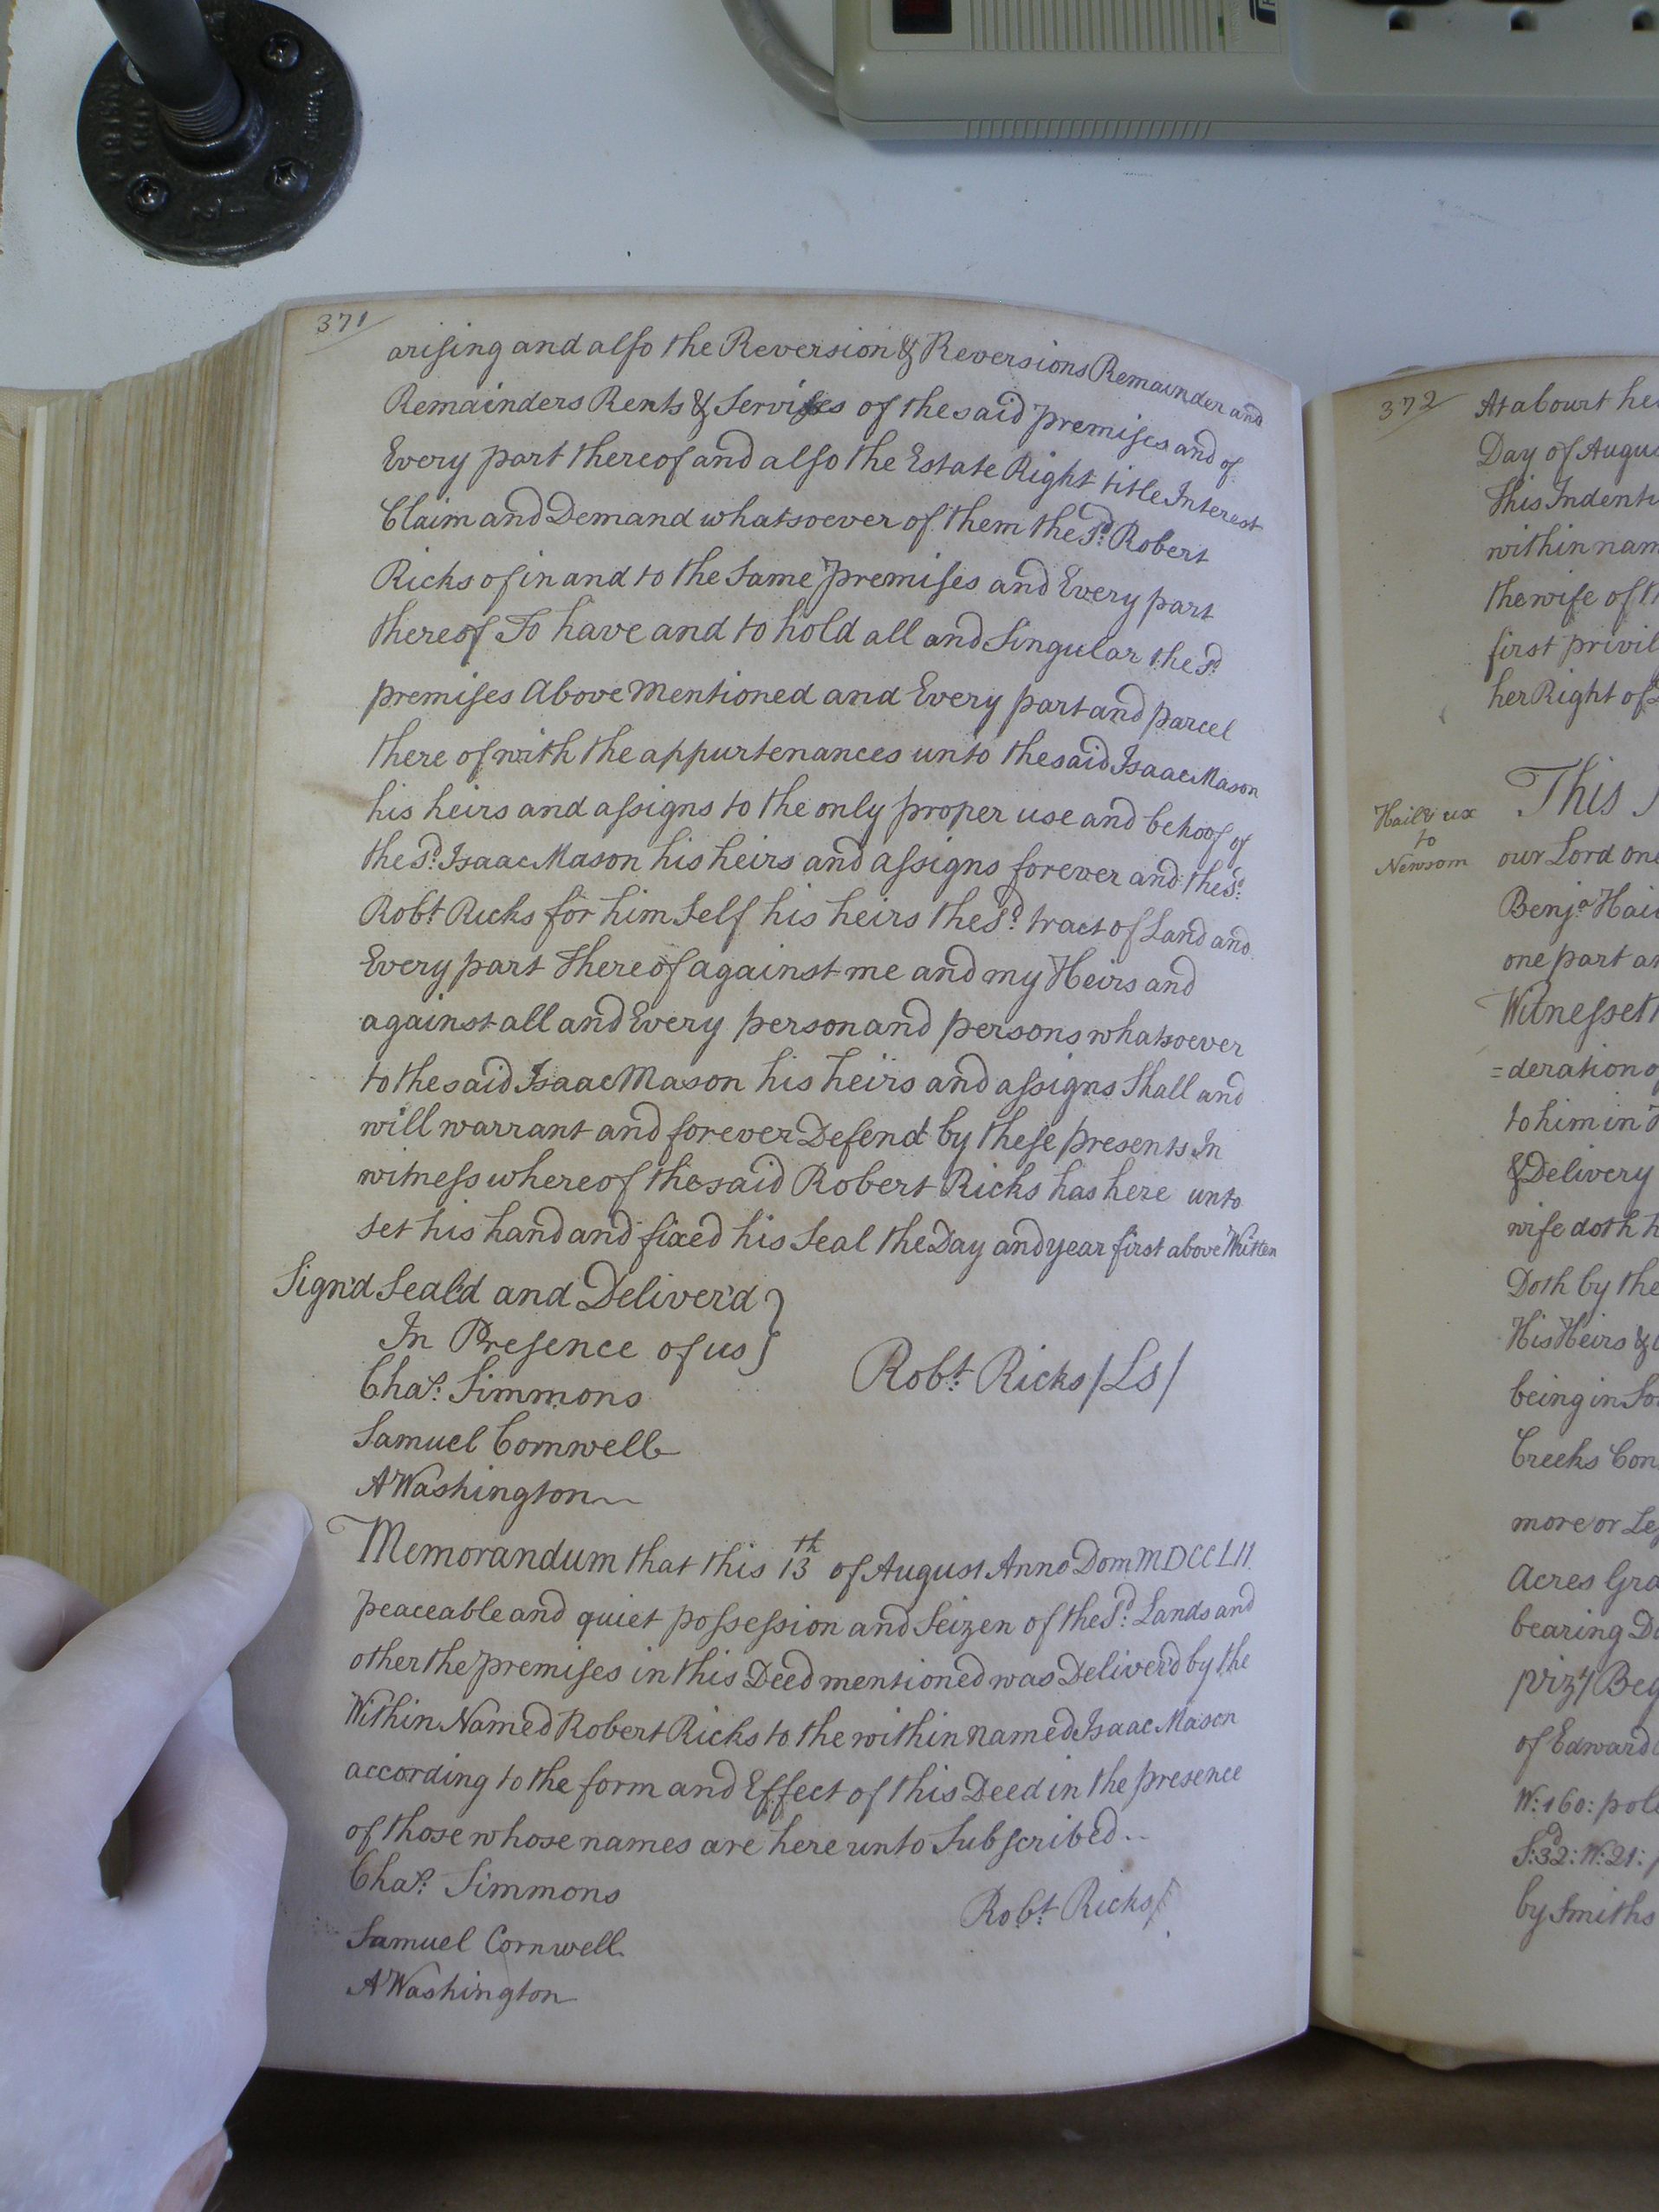 371
arising and also the Reversion & Reversions Remainder and
Remainders Rents & Servises of the said premises and of
Every part thereof and also the Estate Right title Interest
Claim and Demand whatsoever of them the Sd. Robert
Ricks of in and to the Same premises and Every part
thereof To have and to hold all and Singular the Sd.
premises Above Mentioned and Every part and parcel
there of with the appurtenances unto the said Isaac Mason
his heirs and assigns to the only proper use and behoof of
the Sd. Isaac Mason his heirs and assigns forever and the Sd.
Robt. Ricks for him Self his heirs the Sd. tract of Land and
Every part thereof against me and my Heirs and
against all and Every person and persons whatsoever
to the said Isaac Mason his heirs and assigns Shall and
will warrant and forever Defend by these presents In
witness whereof the said Robert Ricks has here unto
set his hand and fixed his Seal the Day and year first above Written
Sign'd Seal'd and Deliver'd }
In Presence of us }
Robt. Ricks /LS/
Chas. Simmons
Samuel Cornwell
A Washington
Memorandum that this 13th of August Anno Dom MDCCLII
peaceable and quiet possession and Seizen of the Sd. Lands and
other the premises in this Deed mentioned was Deliver'd by the
Within Named Robert Ricks to the within named Isaac Mason
according to the form and Effect of this Deed in the presence
of those whose names are here unto Subscribed..
Chas. Simmons
Robt. Ricks/
Samuel Cornwell
A Washington
372
At a Court he
Day of Augus
This Indent
within nam
the wife of th
first privil
her Right of
Hail & ux
to
Newsom
This
our Lord one
Benja. Hai
one part an
Witnesseth
=deration of
to him in
& Delivery
wife doth h
Doth by the
His Heirs &
being in So
Creeks Con
more or Les
Acres Gra
bearing Da
Vizt/ Beg
of Edward
W:160: pol
Sd:32:W:21:
by Smiths